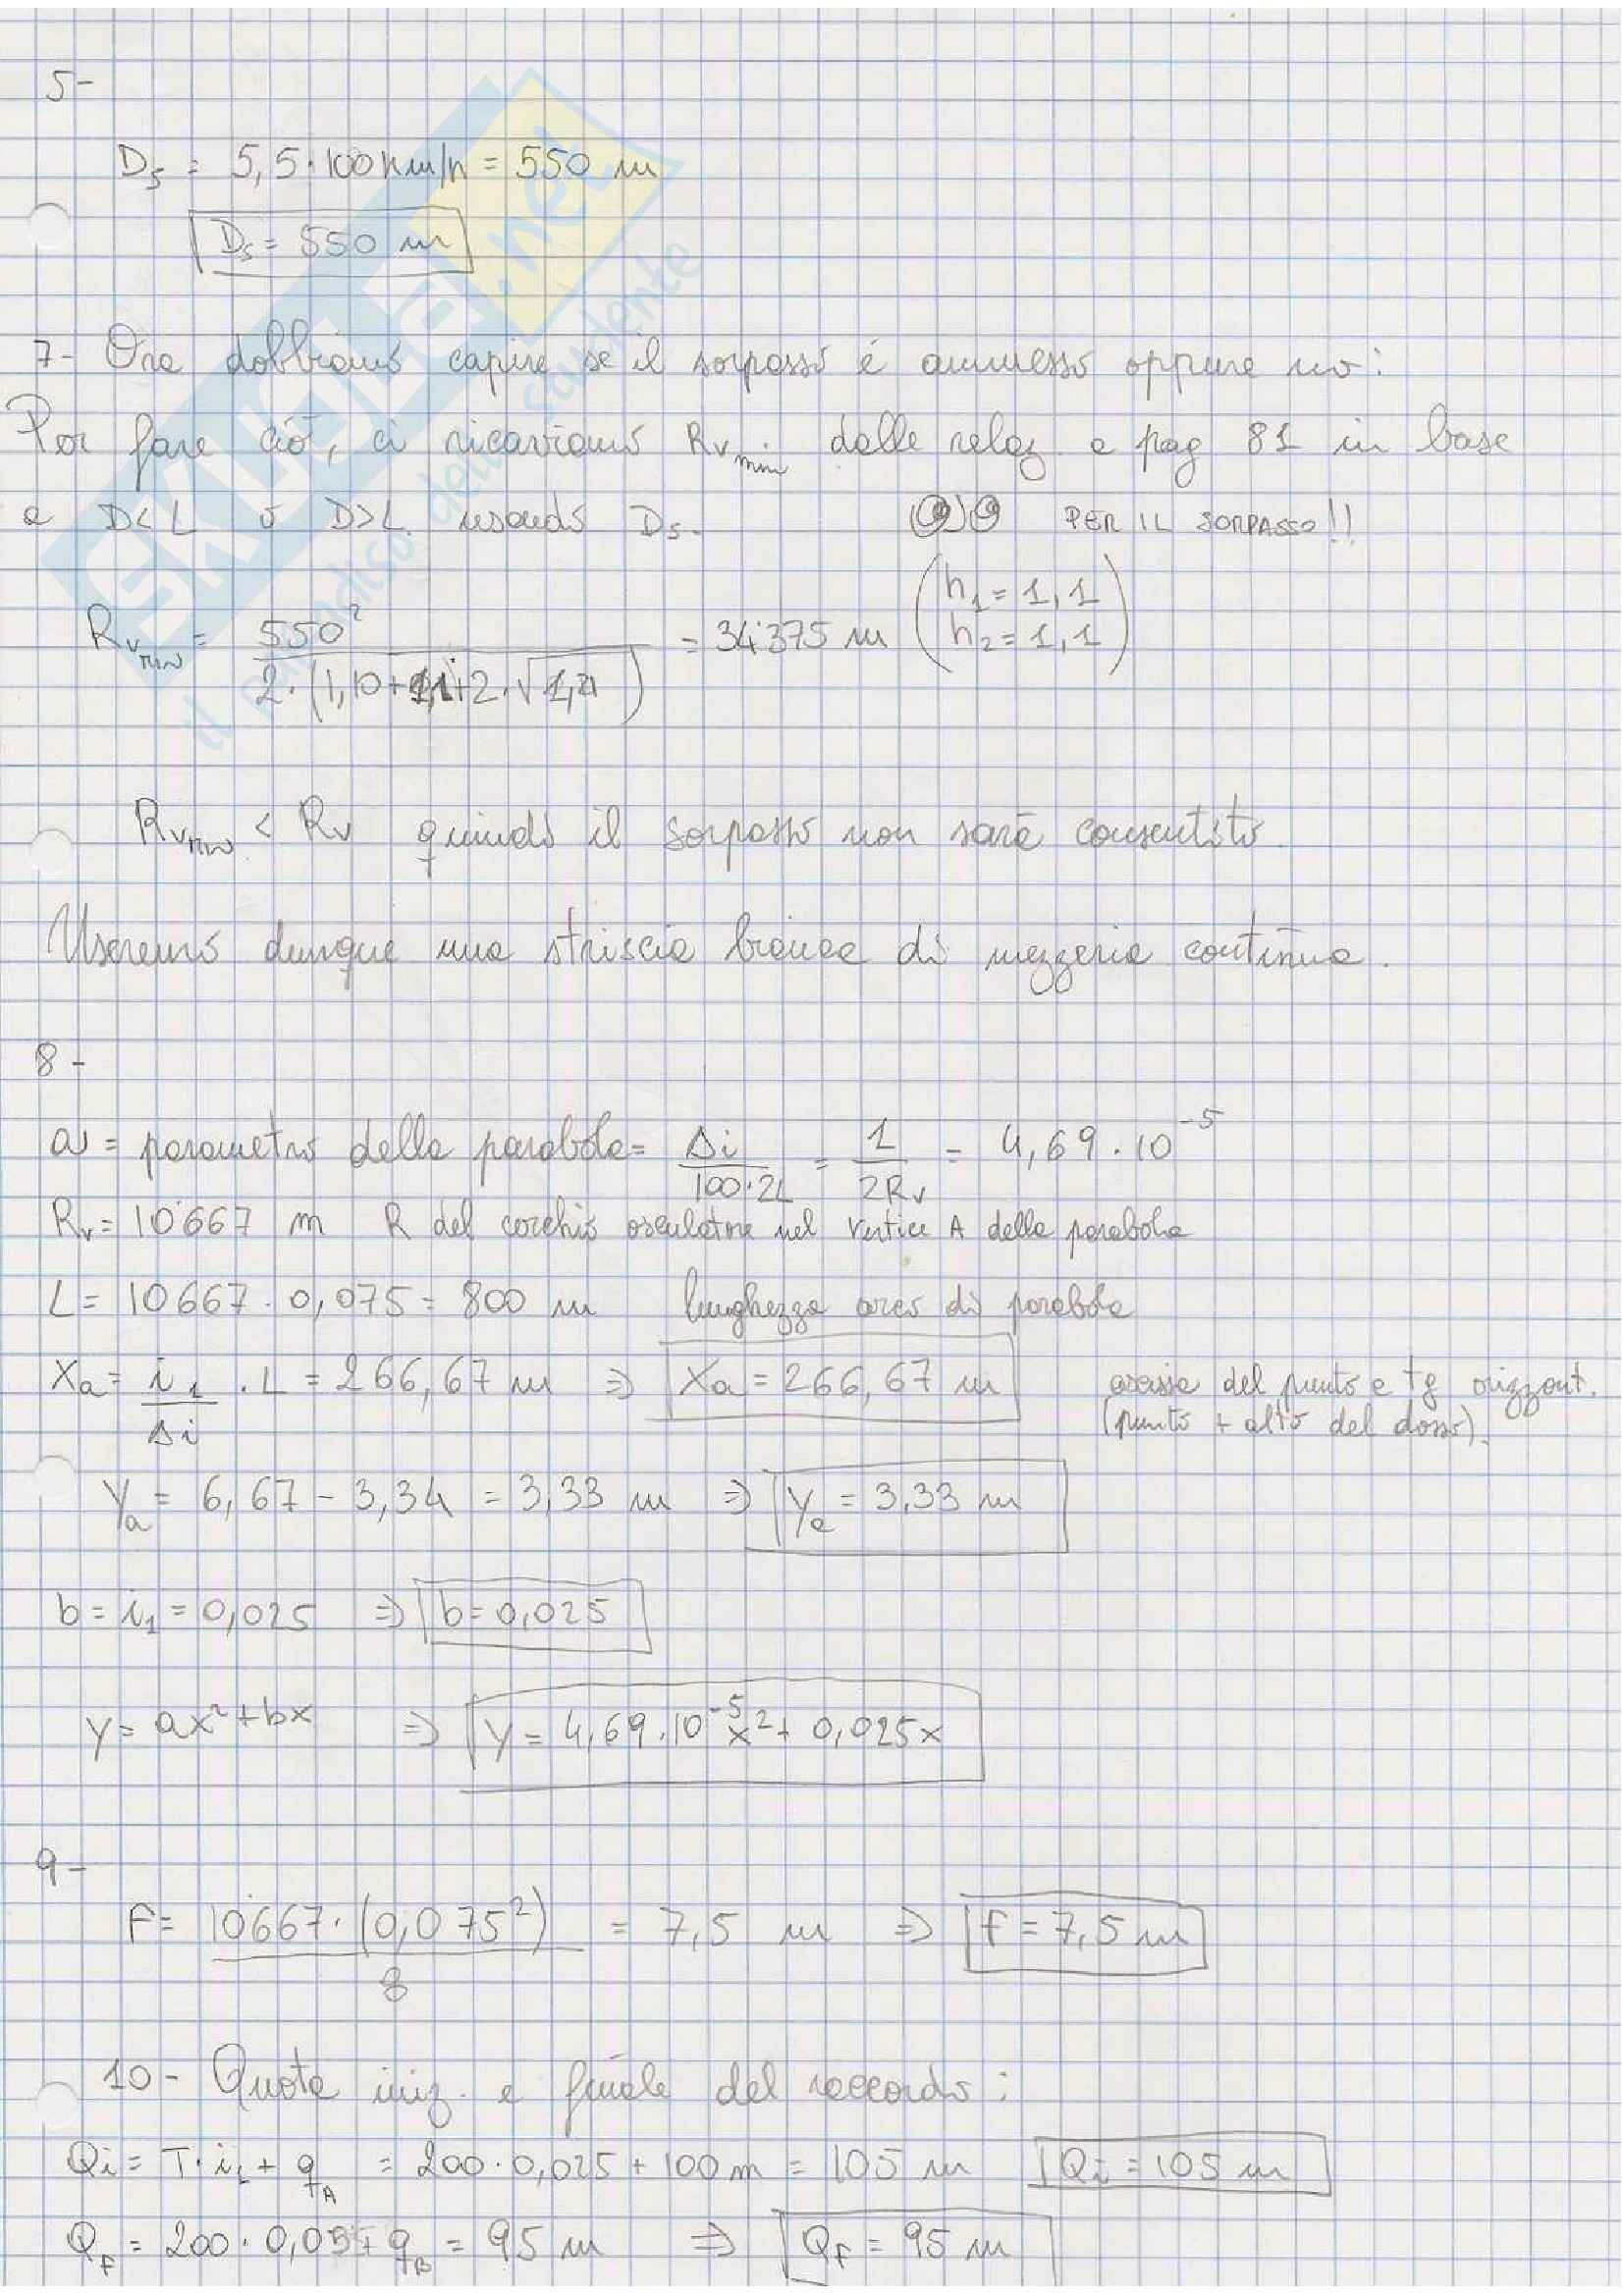 5-
Ds = 5,5·100 km/h = 550 m
Ds = 550 m
7- Ora dobbiamo capire se il sorpasso é ammesso oppure no:
Per fare ciò, ci ricaviamo Rvmin dalle relaz. a pag 81 in base
a D<L o D>L usando Ds. PER IL SORPASSO!!
Rvmin = 550² / 2·(1,10+1,1+2·√1,21) = 34375 m (h1=1,1 h2=1,1)
Rvmin < Rv quindi il sorpasso non sarà consentito.
Useremo dunque una striscia bianca di mezzeria continua.
8-
a = parametro della parabola = Δi / 100·2L = 1 / 2Rv = 4,69·10⁻⁵
Rv = 10'667 m R del cerchio osculatore nel vertice A della parabola
L = 10667·0,075 = 800 m lunghezza arco di parabola
Xa = i1 / Δi · L = 266,67 m ⇒ Xa = 266,67 m ascissa del punto a tg orizzont.
(punto + alto del dosso).
Ya = 6,67 - 3,34 = 3,33 m ⇒ Ya = 3,33 m
b = i1 = 0,025 ⇒ b = 0,025
y = ax² + bx ⇒ y = 4,69·10⁻⁵x² + 0,025x
9-
F = 10667·(0,075²) / 8 = 7,5 m ⇒ f = 7,5 m
10- Quota iniz. e finale del raccordo:
Qi = T·i1 + qA = 200·0,025 + 100 m = 105 m Qi = 105 m
QF = 200· + qB = 95 m ⇒ QF = 95 m
SKUOLA.net
il paradiso dello studente